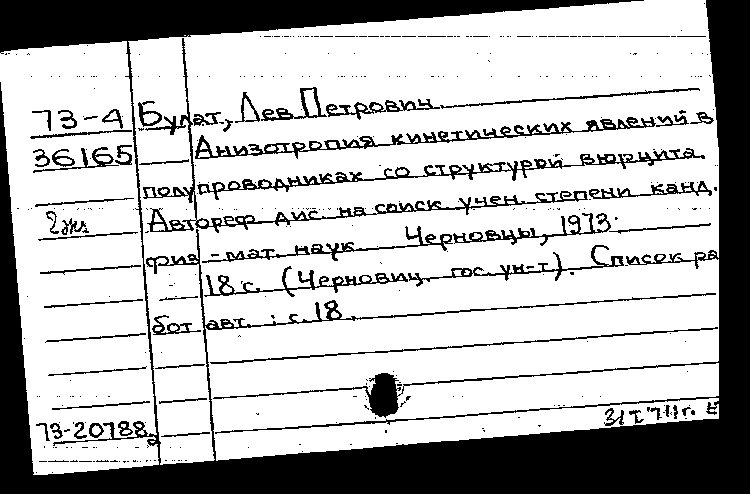 73-4 Булат, Лев Петрович.
36165 Анизотропия кинетических явлений в
полупроводниках со структурой вюрцита.
2 экз Автореф. дис. на соиск. учен. степени канд.
физ.-мат. наук. Черновцы, 1973.
18 с. (Черновиц. гос. ун-т). Список ра
бот авт.: с. 18.
73-20788